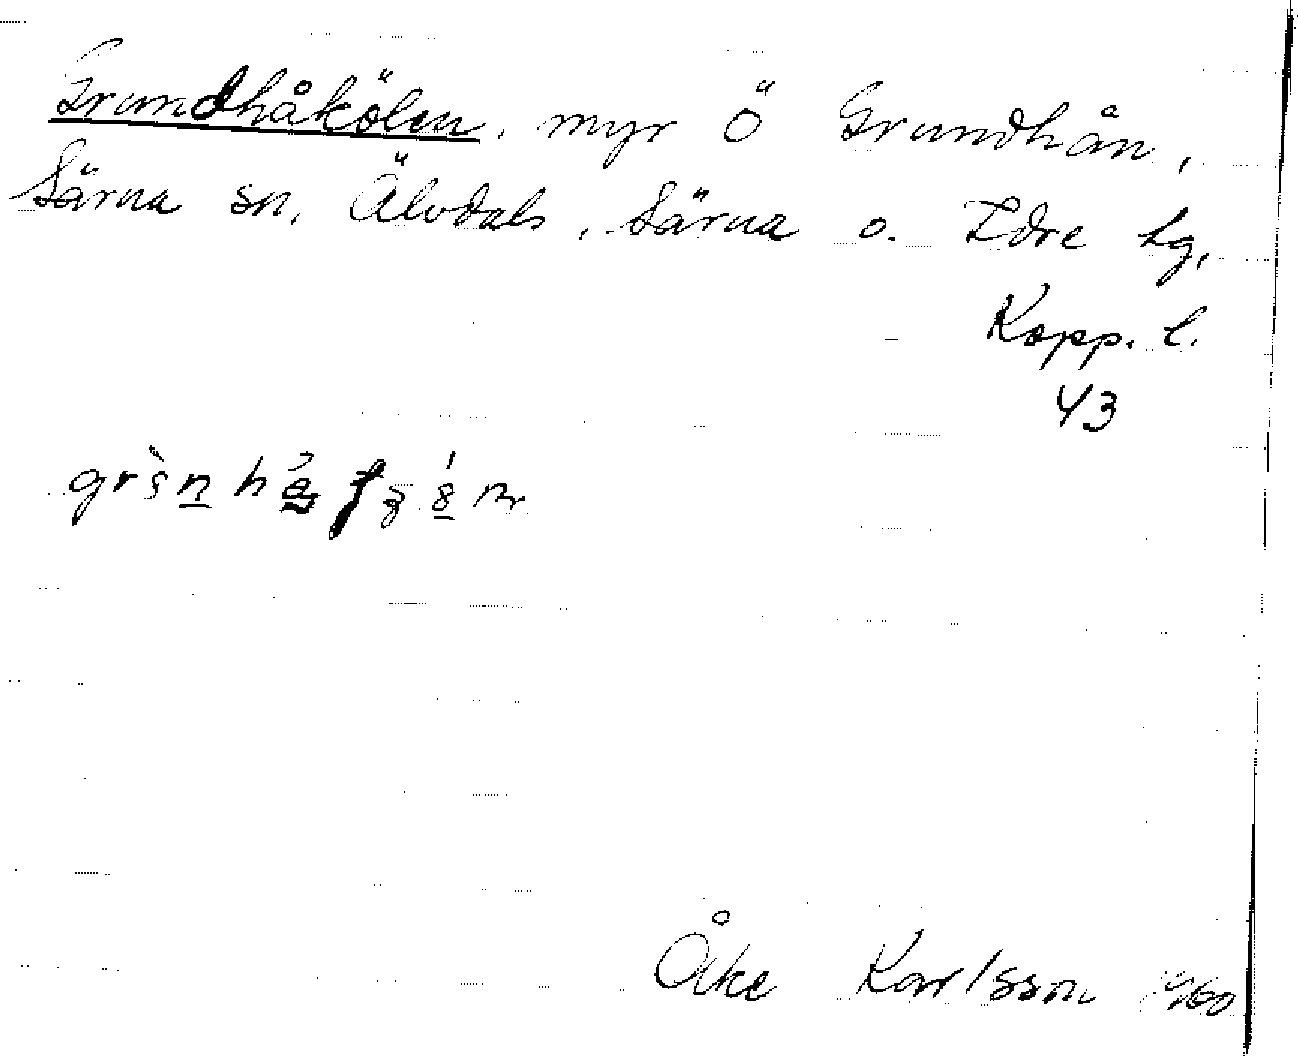 Grundhåkölen, myr Ö Grundhån,
Särna sn, Älvdals, Särna o. Idre tg,
Kopp. l.
43
Åke Karlsson 1960